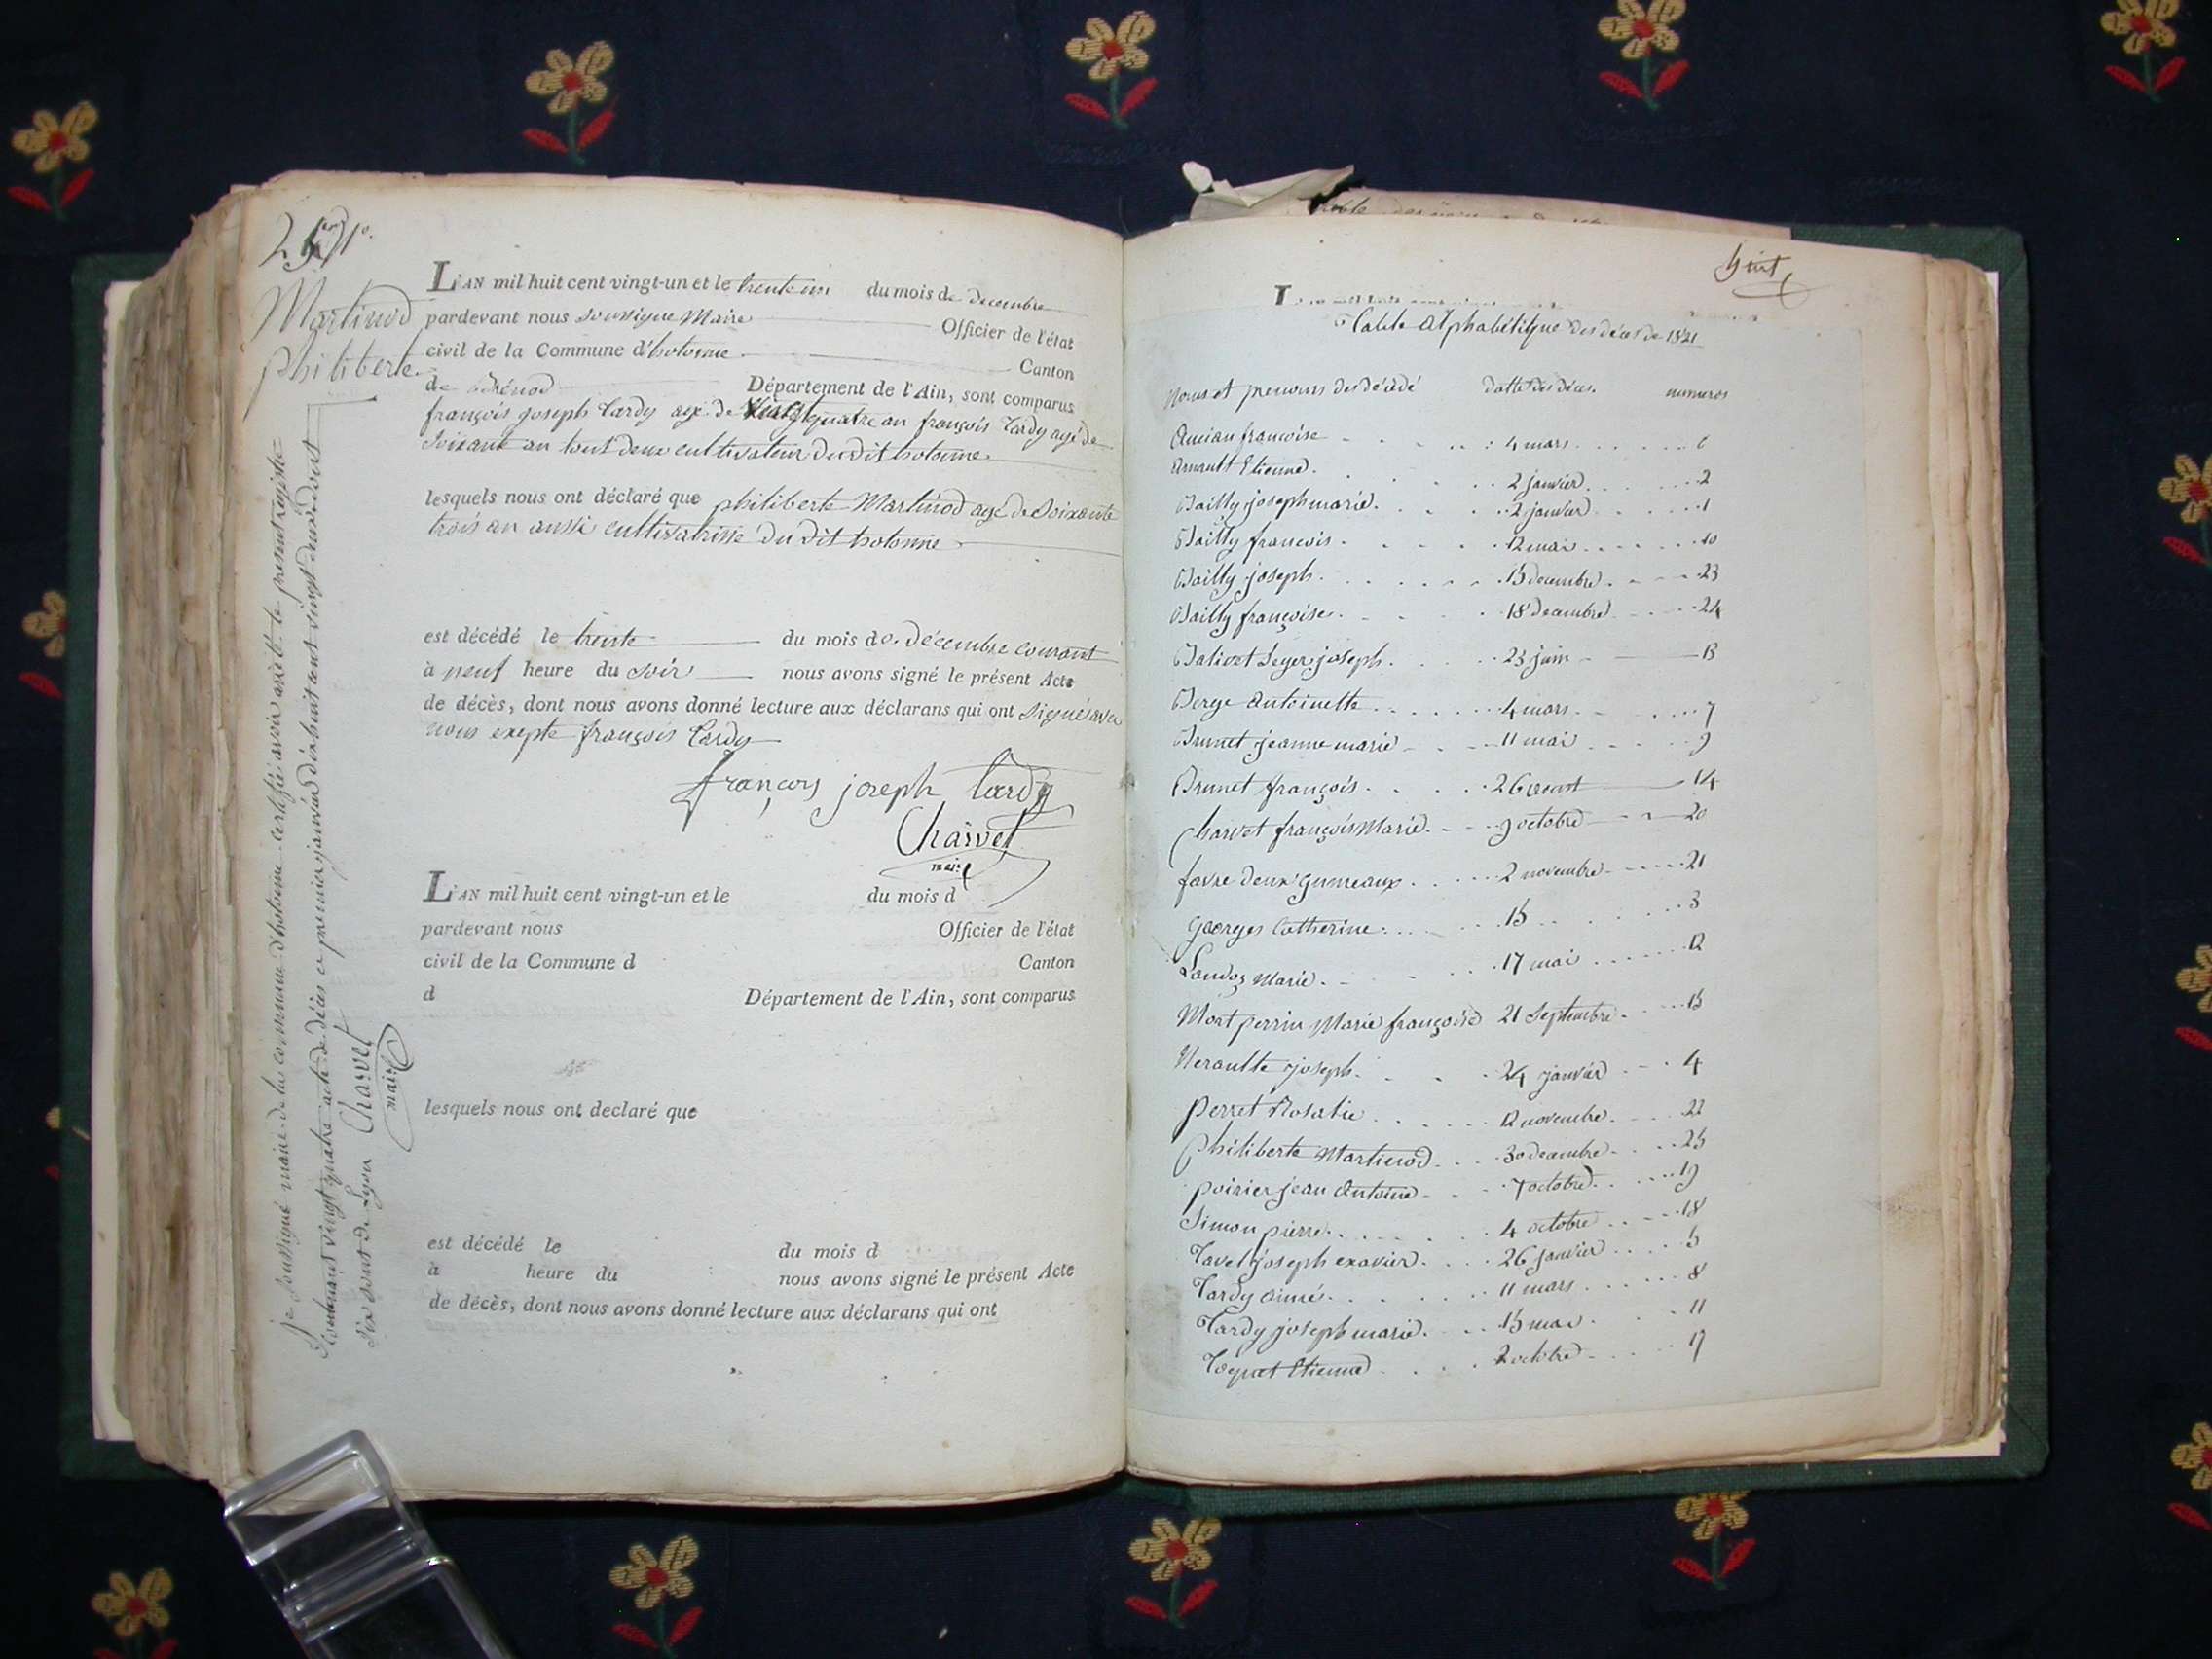 Martinod
philiberte
L'AN mil huit cent vingt-un et le trente un du mois de decembre
pardevant nous soussigné Maire Officier de l'état
civil de la Commune d'hotonne Canton
de Brénod Département de l'Ain, sont comparus
françois joseph tardy agé de quatre an françois tardy agé de
soixante an tout deux cultivateur du dit hotonne
lesquels nous ont déclaré que philiberte Martinod agé de soixante
trois an aussi cultivatrisse du dit hotonne
est décédé le trente du mois de décembre courant
à neuf heure du soir nous avons signé le présent Acte
de décès, dont nous avons donné lecture aux déclarans qui ont signé avec
nous exepte françois tardy
françois joseph tardy
Charvet
maire
L'AN mil huit cent vingt-un et le du mois d
pardevant nous Officier de l'état
civil de la Commune d Canton
d Département de l'Ain, sont comparus
lesquels nous ont declaré que
est décédé le du mois d
à heure du nous avons signé le présent Acte
de décès, dont nous avons donné lecture aux déclarans qui ont
je soussigné maire de la commune d'hotonne certifie avoir arrêté le present registre
contenant vingt quatre acte de décès ce premier janvier dixhuit cent vingt deux
Charvet
maire
huit
Table Alphabétique des décès de 1821
Noms et prenoms des décédé datte des déces. numeros
Ancian francoise 4 mars 6
Arnault Etienne 2 janvier 2
Bailly joseph marie 2 janvier 1
Bailly francois 12 mai 10
Bailly joseph 15 decembre 23
Bailly françoise 18 decembre 24
Balivet Leger joseph 23 juin 13
Berge Antoinette 4 mars 7
Brunet jeanne marie 11 mai 9
Brunet françois 26 aoust 14
Charvet françois Marie 9 octobre 20
favre deux gumeaux 2 novembre 21
Georges Catherine 15 3
Landoz Marie 17 mai 12
Montperrin Marie françoise 21 Septembre 15
Neraulte joseph 24 janvier 4
perret Rosalie 12 novembre 22
philiberte Martinod 30 decembre 25
poirier jean Antoine 7 octobre 19
Simon pierre 4 octobre 18
Tavel joseph exavier 26 janvier 5
Tardy aimé 11 mars 8
Tardy joseph marie 15 mai 11
Etienne 2 octobre 17